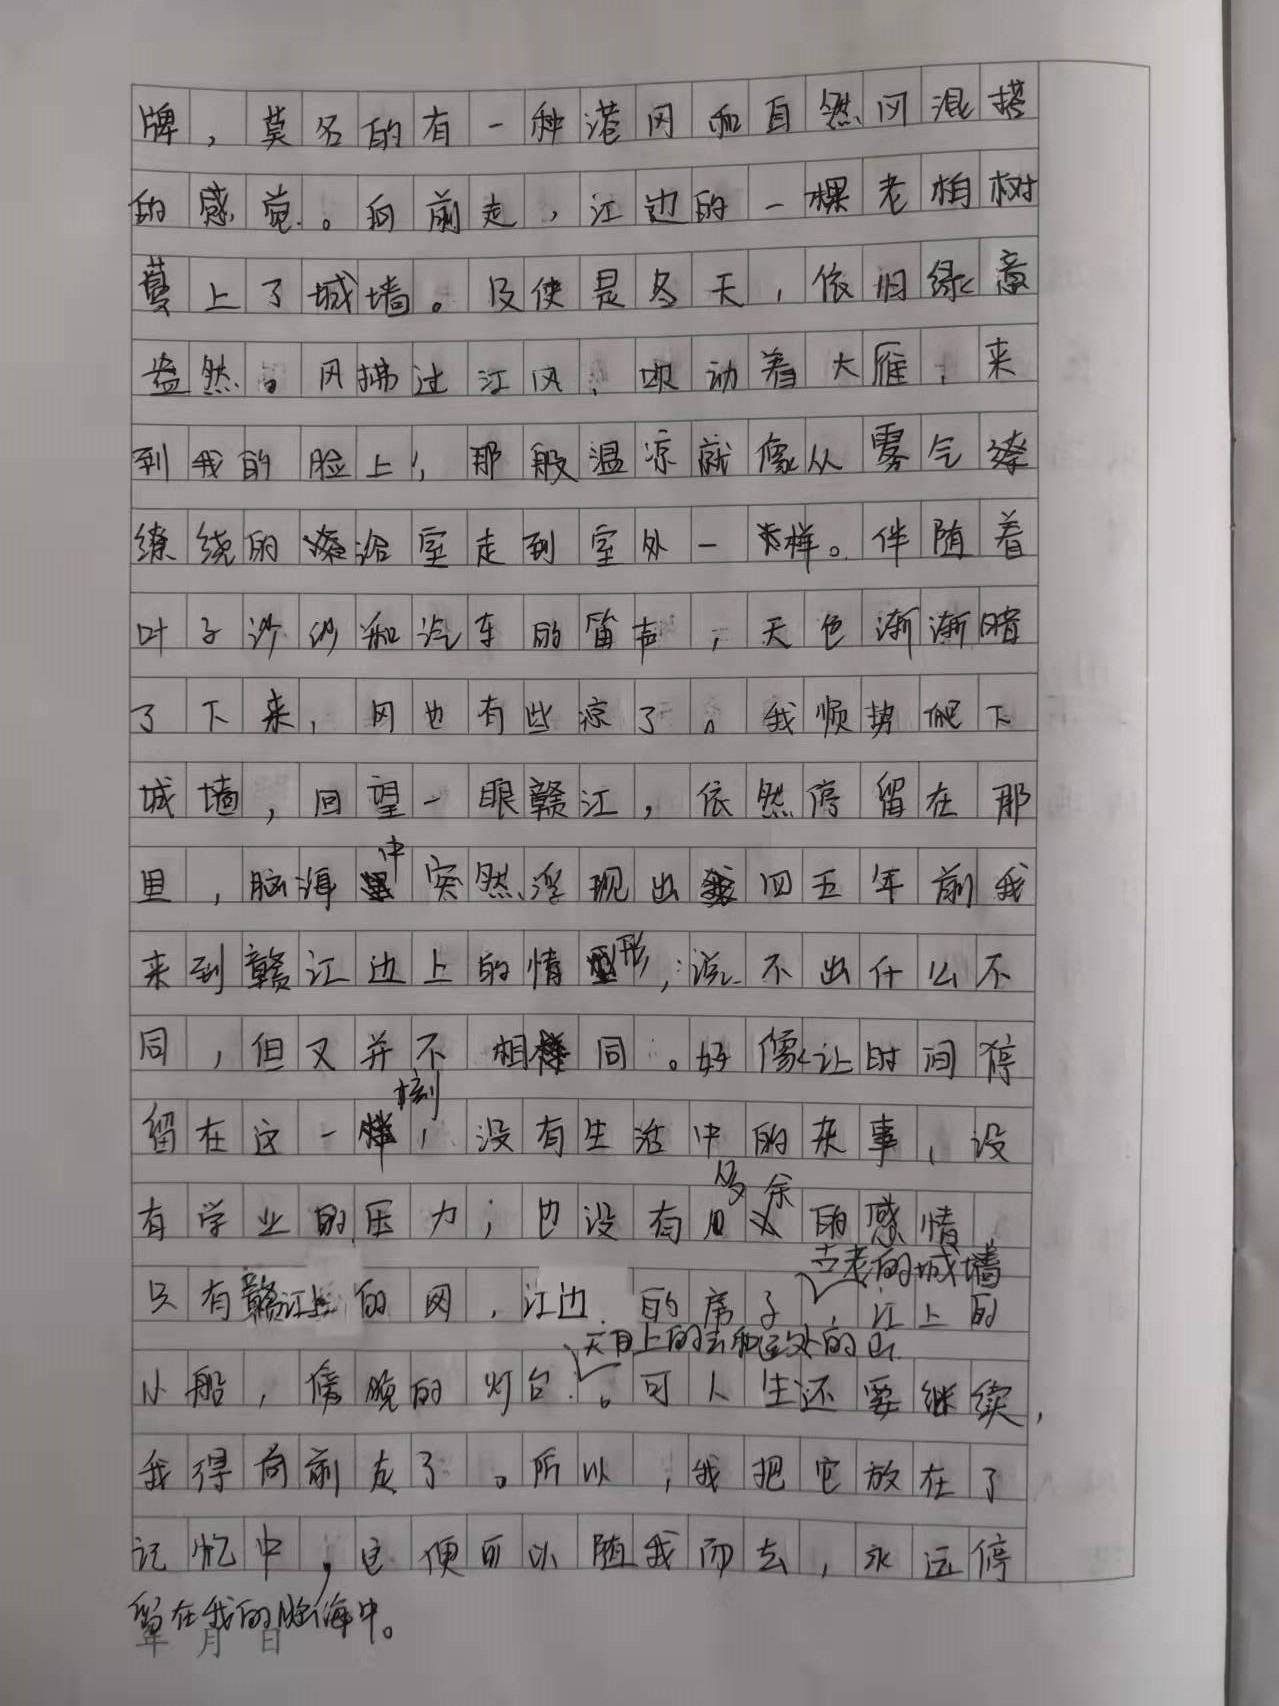 牌，莫名的有一种港风和自然风混搭
的感觉。向前走，江边的一棵老柏树
蔓上了城墙。及使是冬天，依旧绿意
盎然。风拂过江风，吹动着大雁，来
到我的脸上，那般温凉就像从雾气缭
缭绕的澡浴室走到室外一样。伴随着
叶子沙沙和汽车的笛声，天色渐渐暗
了下来，风也有些凉了。我顺势爬下
城墙，回望一眼赣江，依然停留在那
里，脑海中突然浮现出四五年前我
来到赣江边上的情形，说不出什么不
同，但又并不相同。好像让时间停
留在这一刻，没有生活中的杂事，没
有学业的压力，也没有多余的感情，
只有赣江上的风，江边的房子，古老的城墙，江上的
小船，傍晚的灯台，天目上的云和远处的山。可人生还要继续，
我得向前走了。所以，我把它放在了
记忆中，它便可以随我而去，永远停
留在我的脑海中。
年 月 日